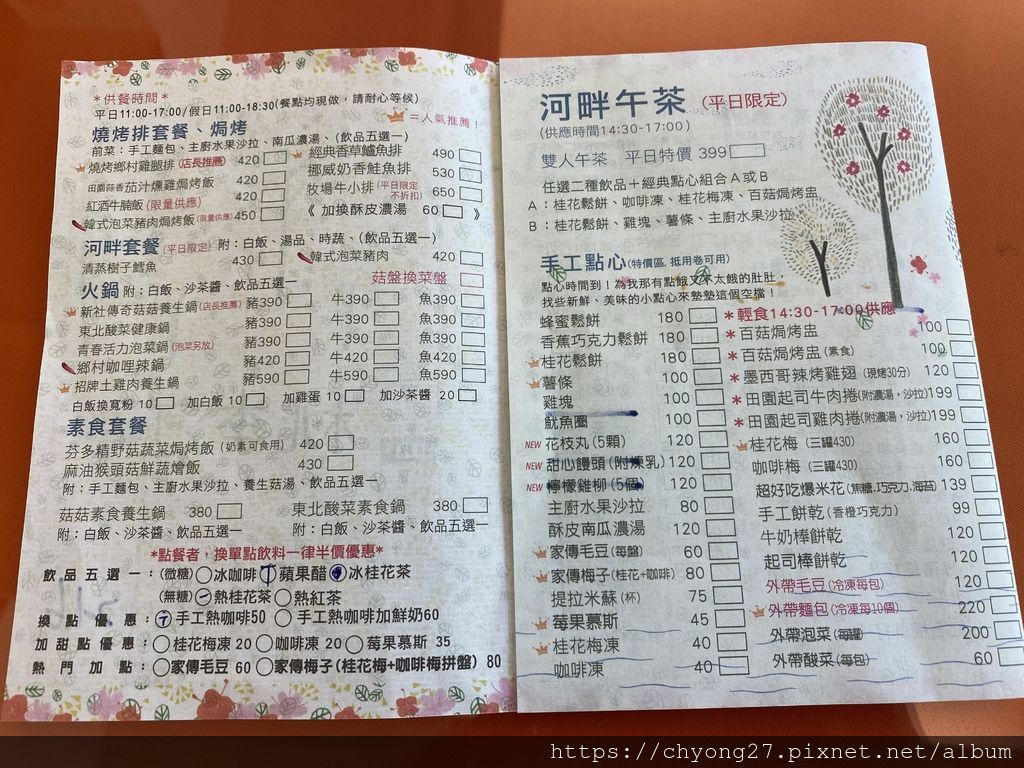 *供餐時間*
平日11:00-17:00/假日11:00-18:30(餐點均現做，請耐心等候)
=人氣推薦！
燒烤排套餐、焗烤
前菜：手工麵包、主廚水果沙拉、南瓜濃湯、(飲品五選一)
燒烤鄉村雞腿排(店長推薦) 420
田園蒜香茄汁燻雞焗烤飯 420
紅酒牛腩飯(限量供應) 420
韓式泡菜豬肉焗烤飯(限量供應) 450
經典香草鱸魚排 490
挪威奶香鮭魚排 530
牧場牛小排(平日限定 不折扣) 650
《 加換酥皮濃湯 60 》
河畔套餐(平日限定) 附：白飯、湯品、時蔬、(飲品五選一)
清蒸樹子鱈魚 430
韓式泡菜豬肉 420
火鍋 附：白飯、沙茶醬、飲品五選一 菇盤換菜盤
新社傳奇菇菇養生鍋(店長推薦) 豬390 牛390 魚390
東北酸菜健康鍋 豬390 牛390 魚390
青春活力泡菜鍋(泡菜另放) 豬390 牛390 魚390
鄉村咖哩辣鍋 豬420 牛420 魚420
招牌土雞肉養生鍋 豬590 牛590 魚590
白飯換寬粉 10 加白飯 10 加雞蛋 10 加沙茶醬 20
素食套餐
芬多精野菇蔬菜焗烤飯(奶素可食用) 420
麻油猴頭菇鮮蔬燴飯 430
附：手工麵包、主廚水果沙拉、養生菇湯、飲品五選一
菇菇素食養生鍋 380 東北酸菜素食鍋 380
附：白飯、沙茶醬、飲品五選一 附：白飯、沙茶醬、飲品五選一
*點餐者，換單點飲料一律半價優惠*
飲品五選一：(微糖) 冰咖啡 蘋果醋 冰桂花茶
(無糖) 熱桂花茶 熱紅茶
換點優惠： 手工熱咖啡50 手工熱咖啡加鮮奶60
加甜點優惠： 桂花梅凍 20 咖啡凍 20 莓果慕斯 35
熱門加點： 家傳毛豆 60 家傳梅子(桂花梅+咖啡梅拼盤) 80
河畔午茶 (平日限定)
(供應時間14:30-17:00)
雙人午茶 平日特價 399
任選二種飲品＋經典點心組合A或B
A：桂花鬆餅、咖啡凍、桂花梅凍、百菇焗烤盅
B：桂花鬆餅、雞塊、薯條、主廚水果沙拉
手工點心(特價區.抵用卷可用)
點心時間到！為我那有點餓又不太餓的肚肚，
找些新鮮、美味的小點心來墊墊這個空檔！
蜂蜜鬆餅 180
香蕉巧克力鬆餅 180
桂花鬆餅 180
薯條 100
雞塊 100
魷魚圈 100
NEW 花枝丸(5顆) 120
NEW 甜心饅頭(附煉乳) 120
NEW 檸檬雞柳(5個) 120
主廚水果沙拉 80
酥皮南瓜濃湯 120
家傳毛豆(每盤) 60
家傳梅子(桂花+咖啡) 80
提拉米蘇(杯) 75
莓果慕斯 45
桂花梅凍 40
咖啡凍 40
*輕食14:30-17:00供應
*百菇焗烤盅 100
*百菇焗烤盅(素食) 100
*墨西哥辣烤雞翅(現烤30分) 120
*田園起司牛肉捲(附濃湯,沙拉) 199
*田園起司雞肉捲(附濃湯,沙拉) 199
桂花梅(三罐430) 160
咖啡梅(三罐430) 160
超好吃爆米花(焦糖.巧克力.海苔) 139
手工餅乾(香橙巧克力) 99
牛奶棒餅乾 120
起司棒餅乾 120
外帶毛豆(冷凍每包) 120
外帶麵包(冷凍每10個) 220
外帶泡菜(每罐) 200
外帶酸菜(每包) 60
https://chyong27.pixnet.net/album